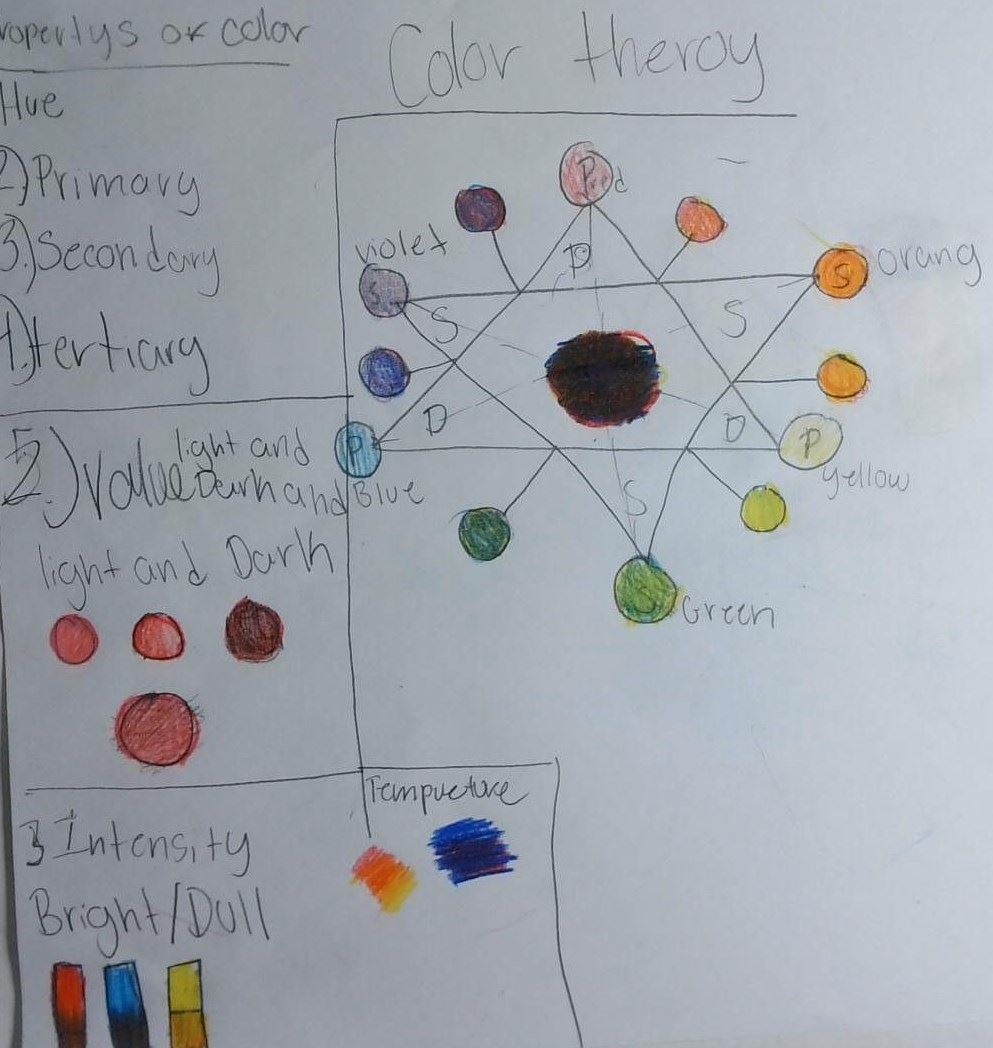 ropertys of color
Color theroy
Hue
2)Primary
3.)Secondary
1.)tertiary
5
2.)Value light and
Dark and
light and Dark
3 Intensity
Bright/Dull
Tempueture
P
violet
S
S
S
orang
S
P
P
D
D
P
yellow
Blue
S
Green